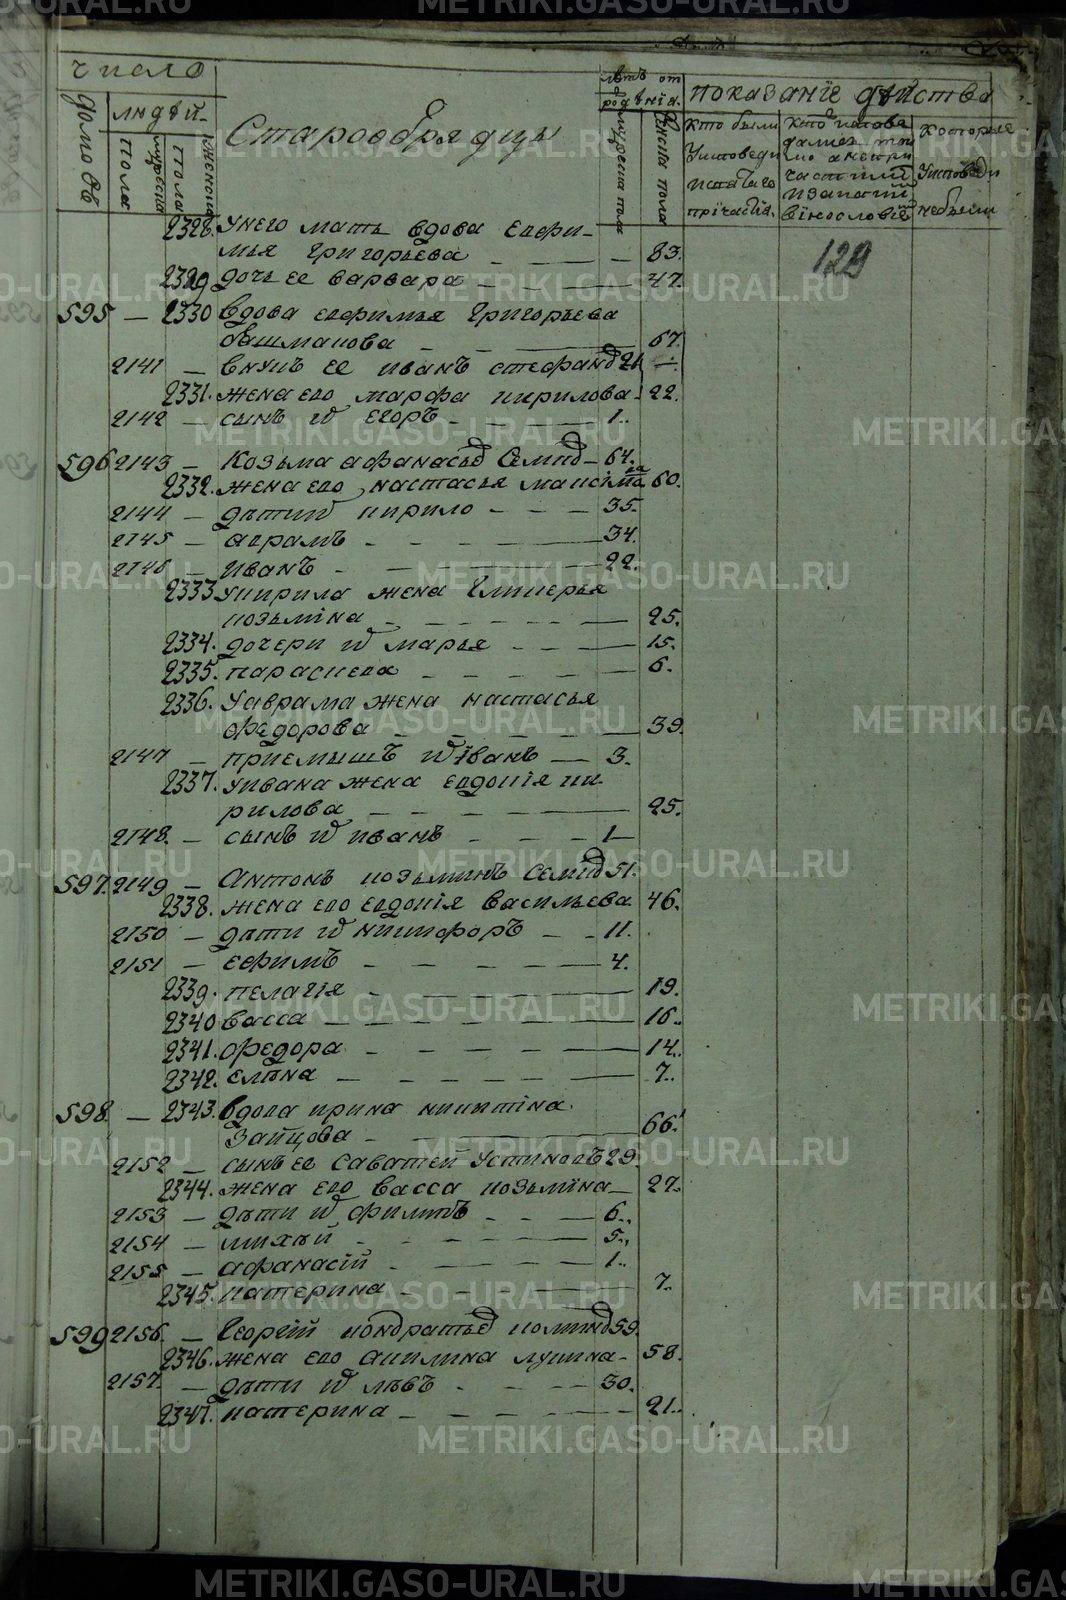 число
домовъ
людъй
мужеска пола
женска пола
Старообрядцы
лѣтъ от рожденїя
мужеска пола
женска пола
показанїе дѣйства
кто были Уисповеди исвятаго прїчастїя
которые Уисповеди небыли
129
2328. Унего мать вдова евфи-
мья григорьева 83.
2329 дочь ее варвара 47.
595 — 2330 вдова евфимья григорьева
башмакова 67.
2141 — внукъ ее иванъ стефанов 21
2331. жена ево марфа кирилова 22.
2142 — сынъ их егоръ 1.
596 2143 — козьма афанасьев Семин 64.
2332. жена ево настасья максимова 60.
2144 — дѣтиих кирило 35.
2145 — аврамъ 34.
2146 — иванъ 22.
2333 укирила жена гликерья
козьмина 25.
2334. дочери их марья 15.
2335. параскева 6.
2336. Уаврама жена настасья
федорова 39.
2147 — приемышъ их їванъ 3.
2337. уивана жена евдокїя ки-
рилова 25.
2148. — сынъ их иванъ 1
597. 2149 — Антонъ козьминъ семин 51.
2338. жена ево евдокїя васильева 46.
2150 — дѣти их никифоръ 11.
2151 — ефимъ 4.
2339. пелагїя 19.
2340 васса 16.
2341. федора 14.
2342. елѣна 7.
598. — 2343. вдова ирина никитїна
Зайцова 66.
2152 — сынъ ее саватей устиновъ 29.
2344. жена ево васса козьмїна 27.
2153 — дѣти их филипъ 6.
2154 — михѣй 5.
2155 — афанасїй 1.
2345. катерина 7.
599 2156. — Георгїй кондратьев 59.
2346. жена ево акилина лукина 58.
2157. — дѣти их лѣвъ 30.
2347. катерина 21.
METRIKI.GASO-URAL.RU